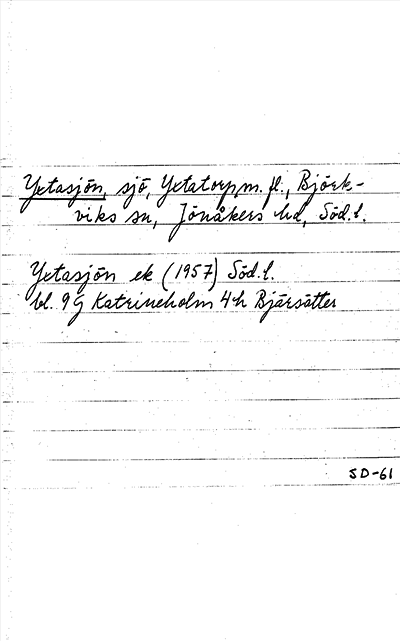 Yxtasjön, sjö, Yxtatorp m. fl., Björk-
viks sn, Jönåkers hd, Söd.l.
Yxtasjön ek (1957) Söd.l.
bl. 9G Katrineholm 4h Bjärsätter
SD-61